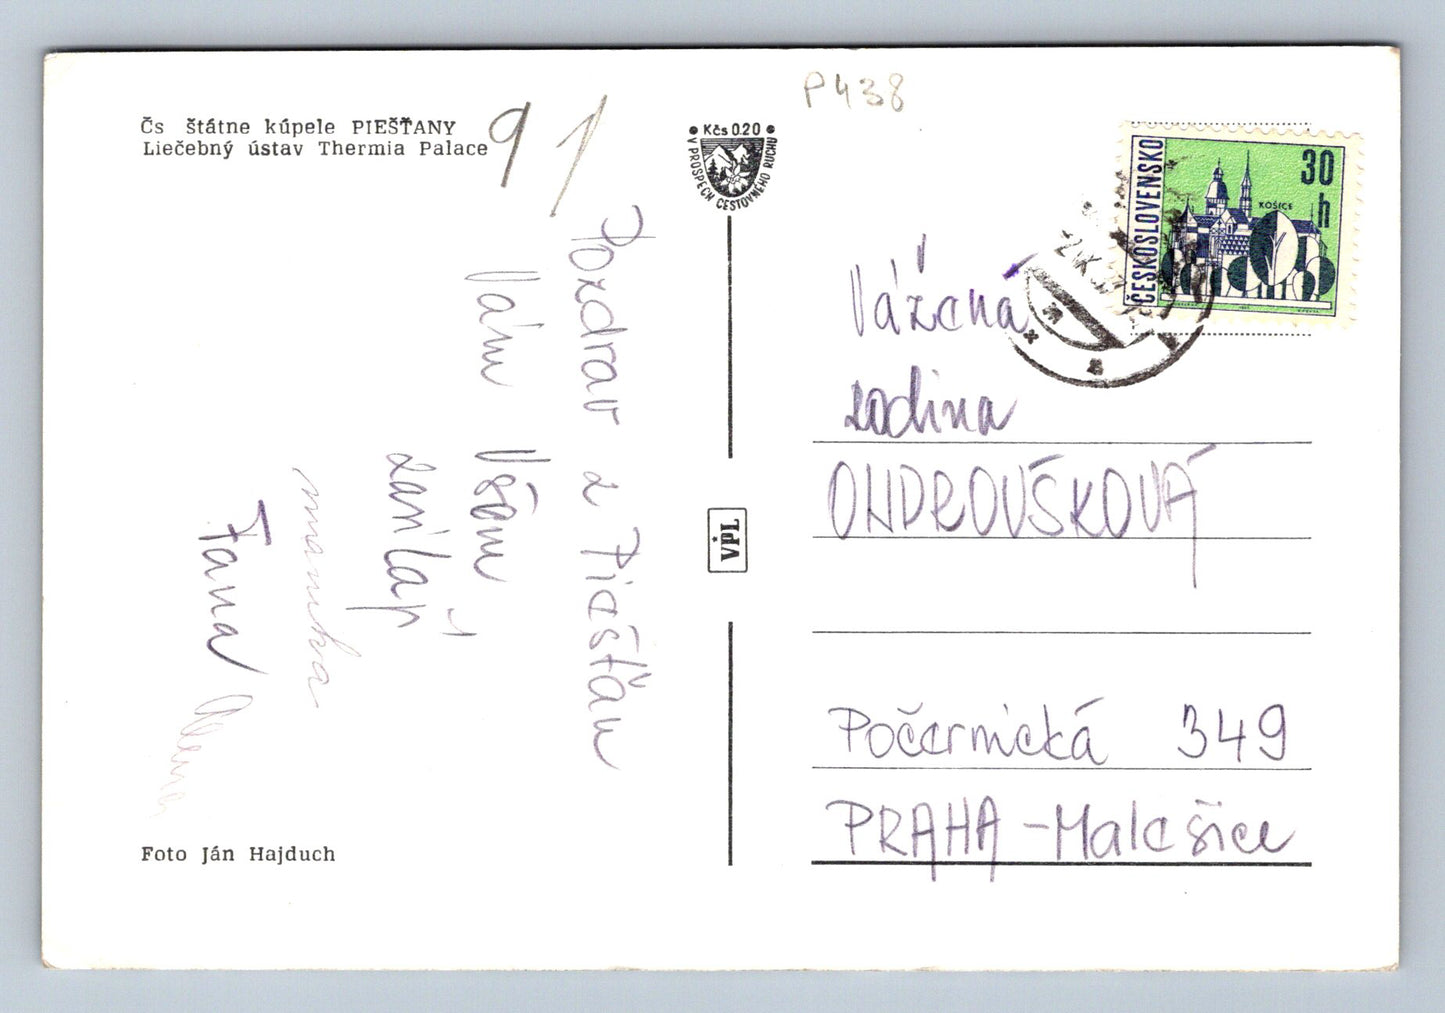 Čs štátne kúpele PIEŠŤANY
Liečebný ústav Thermia Palace
91
Pozdrav z Piešťan
Vám Všem
zasílají
maminka
Jana
Foto Ján Hajduch
Kčs 0.20
V PROSPECH CESTOVNÉHO RUCHU
VPL
P438
ČESKOSLOVENSKO
30 h
KOŠICE
Vážená
rodina
ONDROUŠKOVÁ
Počernická 349
PRAHA - Malešice